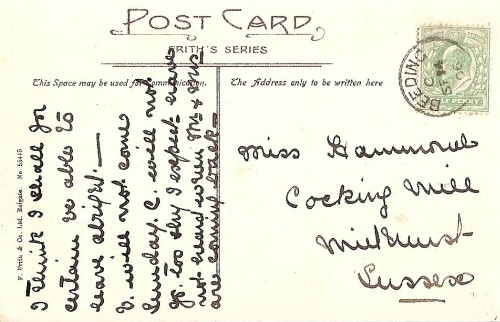 POST CARD
FRITH'S SERIES
This Space may be used for Communication.
The Address only to be written here
BEEDING
SE 14
06
HALFPENNY
I think I shall for
certain be able to
leave alright —
V. will not come
Sunday. C. will not
go. Too shy I expect. have
not heard when Mr & Mrs
are coming back —
Miss Hammond
Cocking Mill
Midhurst
Sussex
F. Frith & Co. Ltd., Reigate. No. 55415